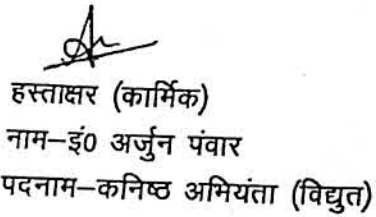 हस्ताक्षर (कार्मिक)
नाम–इं0 अर्जुन पंवार
पदनाम–कनिष्ठ अभियंता (विद्युत)